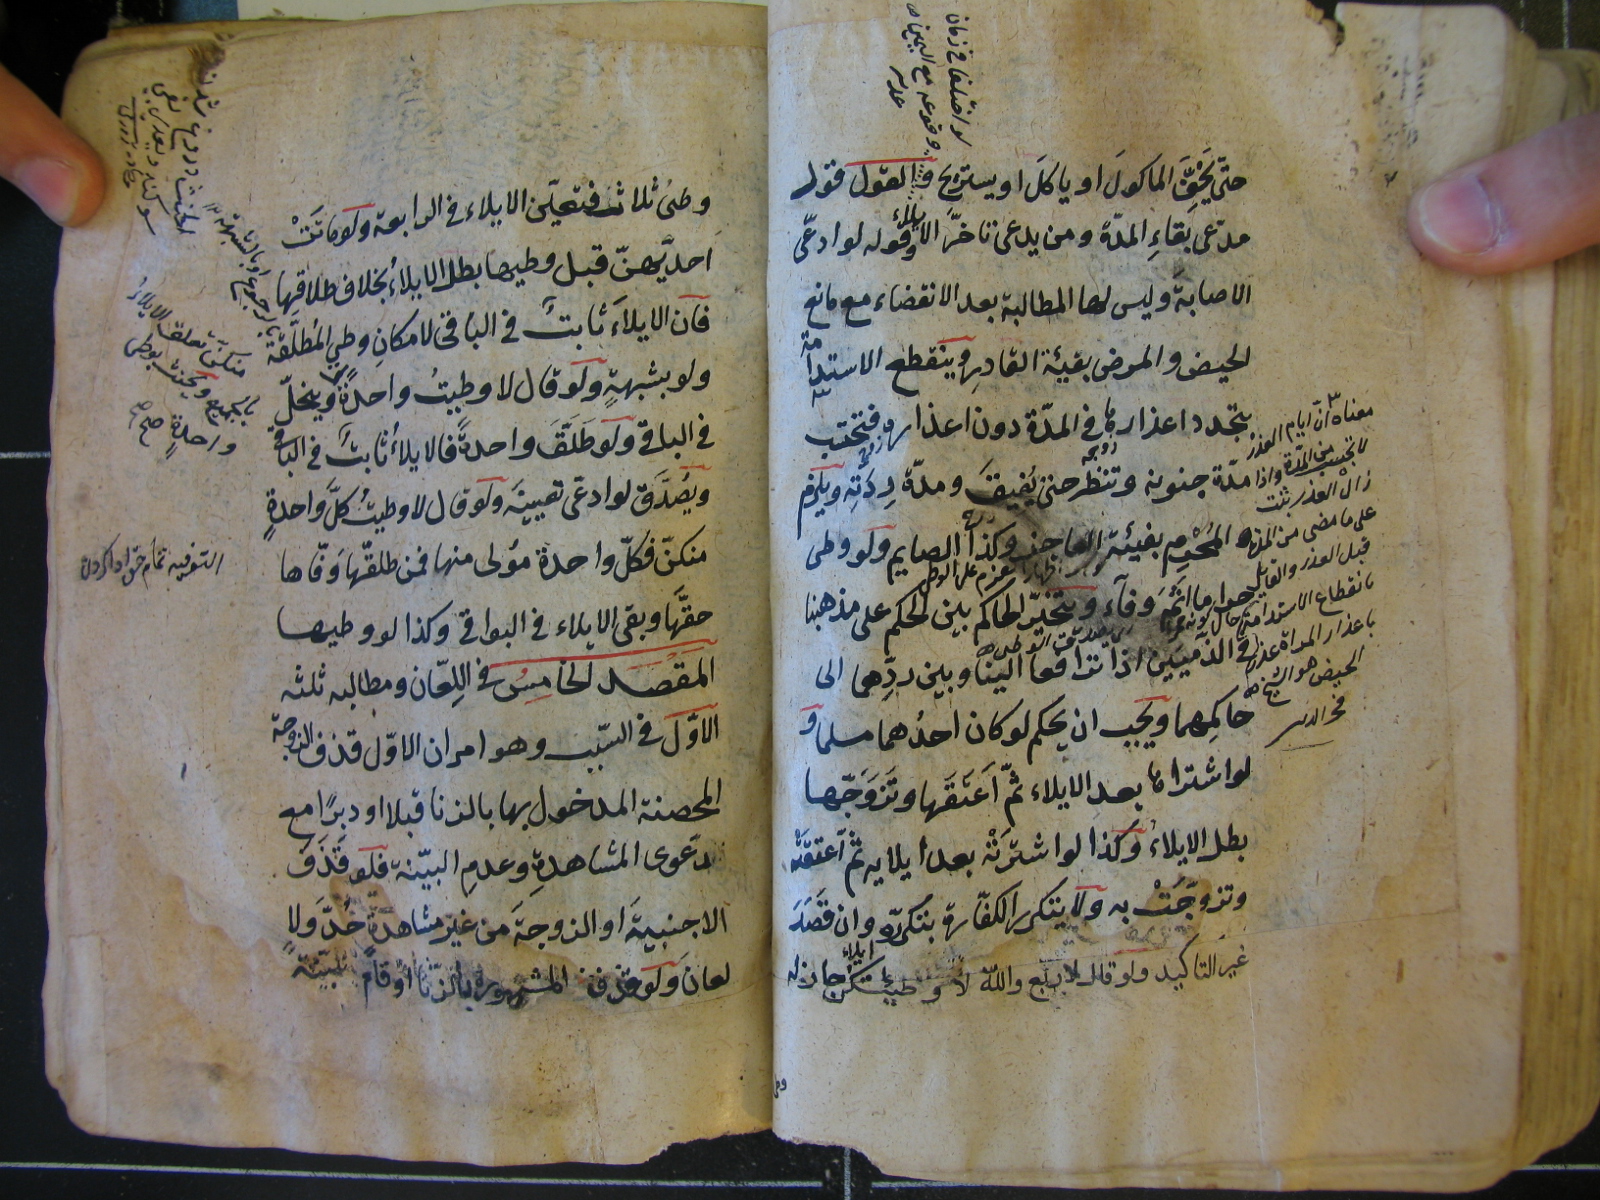 حتّى يَخِفَّ الماكولَ او ياكلَ او يستريحَ والقول قولُ
مدّعى بقاءِ المدّة ومن يدعى تاخّر الايلاء وقوله لو ادعّى
الاصابةَ وليس لها المطالبة بعد الانقضاء مع مانع
الحيض والمرض بفيئة القادر وينقطع الاستدامة
بتجدد اعذارها فى المدّة دون اعذاره فتحتسب
مدّة جنونه وتنظر حتى يُفيقَ ومدّة رِدّتِه ويلزم
المُحْرِم بفيئة العاجز وكذا الصايم ولو وطى
حراما اثم وفآء ويتخيّر الحاكم بين الحكم على مذهبنا
فى الذّميّين اذا ترافعا الينا وبين ردِّهما الى
حاكِمِهما ويجب ان يحكم لو كان احدُهما مسلما و
لو اشتراها بعد الايلاء ثمّ اَعتَقَها وتَزَوَّجَها
بطل الايلاءُ وكذا لو اشترَتْهُ بعد ايلايه ثم اعتقَتْه
وتزوّجَتْ به ولا يتكرر الكفّارة بتكررّه وان قَصَدَ
غيرَ التاكيد ولو قال لاربع والله لا وطيتكنّ جاز له
لو اختلفا فى زمان
وقوعه مع اليمين
معناه انّ ايام العذر
لا تحتسب من المدّة واذا
زال العذر بنت
على ما مضى من المدّة
قبل العذر والقايل
بانقطاع الاستدامة
باعذار المراة عدا
الحيض هو الشيخ
فخر الدين
وطئُ ثلاث فتعيّن الايلاء فى الرابعة ولو ماتَتْ
احديهنّ قبل وطيها بطل الايلاءُ بخلاف طلاقِها
فان الايلاءَ ثابتٌ فى الباقى لامكان وطي المُطلّقة
ولو بشبهةٍ ولو قال لا وطيتُ واحدةً وينحلّ
فى الباقى ولو طَلّقَ واحدةً فالايلاءُ ثابتٌ فى الباقى
ويُصَدَّق لو ادعّى تعيينَه ولو قال لا وطيتُ كلَّ واحدةٍ
منكنّ فكلّ واحدة مُولى منها فمن طلقّها وَفّاها
حقَّها وبقى الايلاء فى البواقى وكذا لو وطيها
المَقْصَد الخامِسُ فى اللِعّان ومطالبه ثلثه
الاوّل فى السبّب وهو امران الاوّل قذف الزوجة
المحصنة المدخول بها بالزنا قبلا او دبرًا مع
دَعوى المشاهدةِ وعدمِ البيّنة فلو قَذَفَ
الاجنبيةَ او الزوجةَ من غير مشاهدة حُدّ ولا
لعان ولو قذف المشهورة بالزنا او قام بيّنة
منكنّ تعلق الايلاءُ
بالجميع ويحنث بوطى
واحدة صح
التوفيه تمام حق ادا كردن
وطى